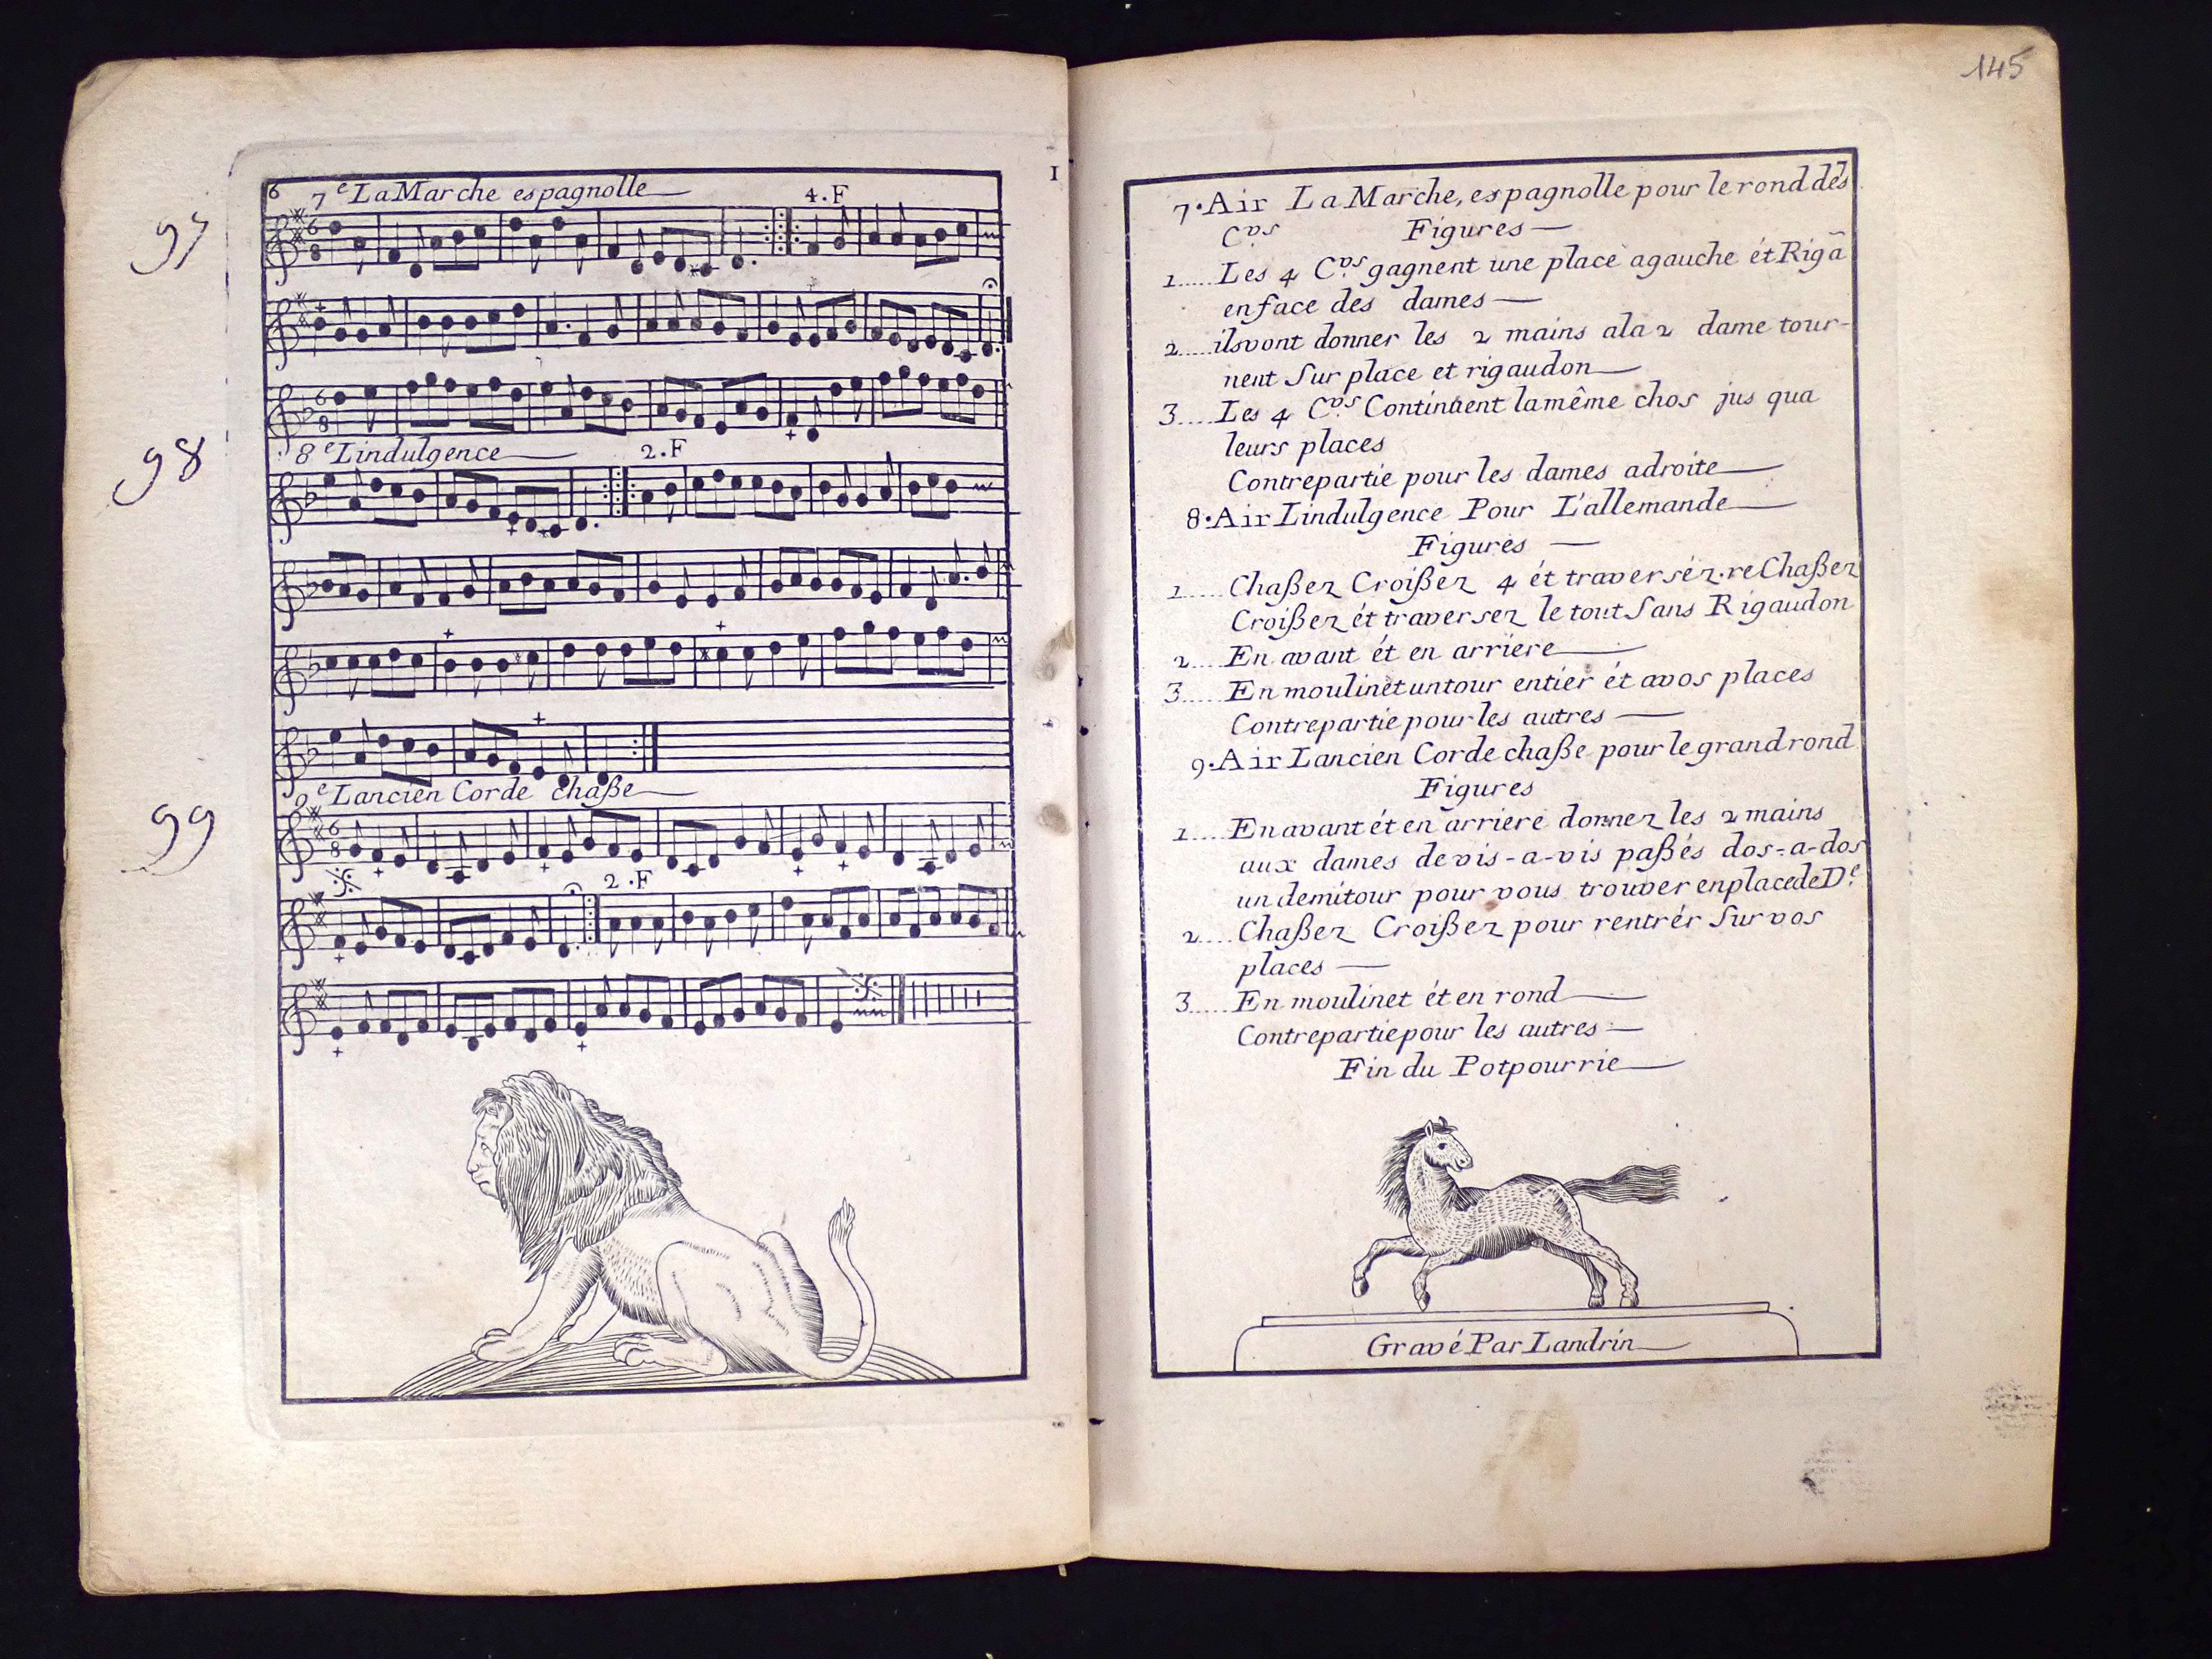 6 7e La Marche espagnolle
4.F
97
98
8e Lindulgence
2.F
99
9e Lancien Corde chaße
2.F
I
145
7. Air La Marche, espagnolle pour le rond des
Cvs Figures
1 Les 4 Cvs gagnent une place agauche ét Rigā
enface des dames
2 ilsvont donner les 2 mains ala 2 dame tour-
nent Sur place et rigaudon
3 Les 4 Cvs Continuent lamême chos jus qua
leurs places
Contrepartie pour les dames adroite
8. Air Lindulgence Pour L'allemande
Figures
1 Chaßez Croißez 4 ét traversér. re Chaßez
Croißez ét traversez le tout Sans Rigaudon
2 En avant ét en arriere
3 En moulinet untour entier ét avos places
Contrepartie pour les autres
9. Air Lancien Corde chaße pour le grand rond
Figures
1 En avant ét en arriere donnez les 2 mains
aux dames de vis-a-vis paßés dos-a-dos
un demitour pour vous trouver enplacedeDe.
2 Chaßez Croißez pour rentrér Sur vos
places
3 En moulinet ét en rond
Contrepartie pour les autres
Fin du Potpourrie
Gravé Par Landrin